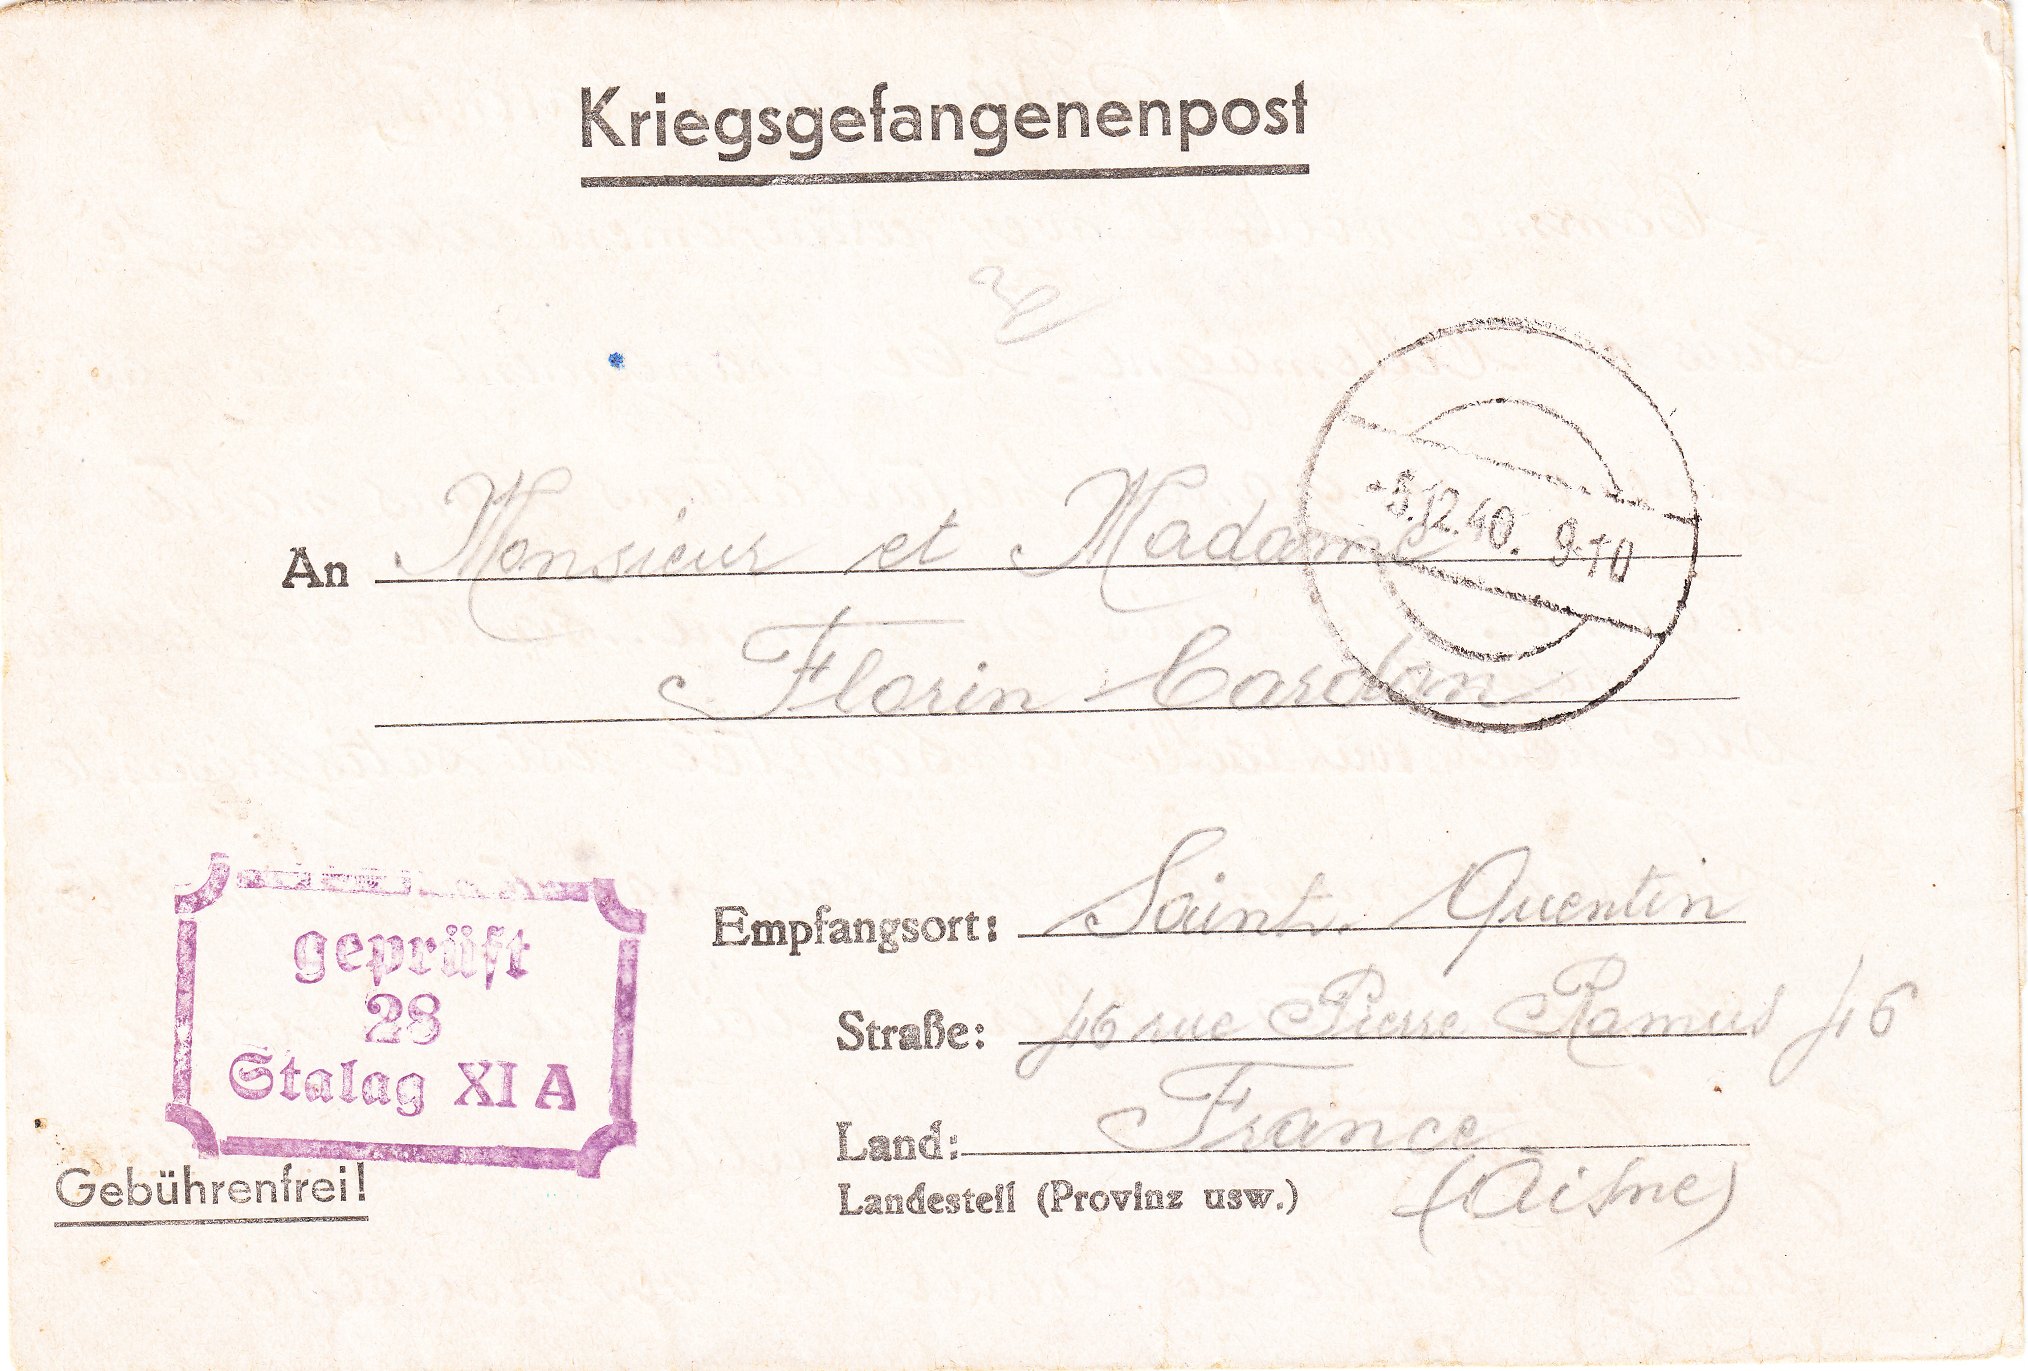 Kriegsgefangenenpost
-5.12.40. 9-10
An Monsieur et Madame
Florin Cardon
geprüft
28
Stalag XI A
Empfangsort: Saint. Quentin
Straße: 46 rue Pierre Ramus 46
Land: France
Landesteil (Provinz usw.) (Aisne)
Gebührenfrei!